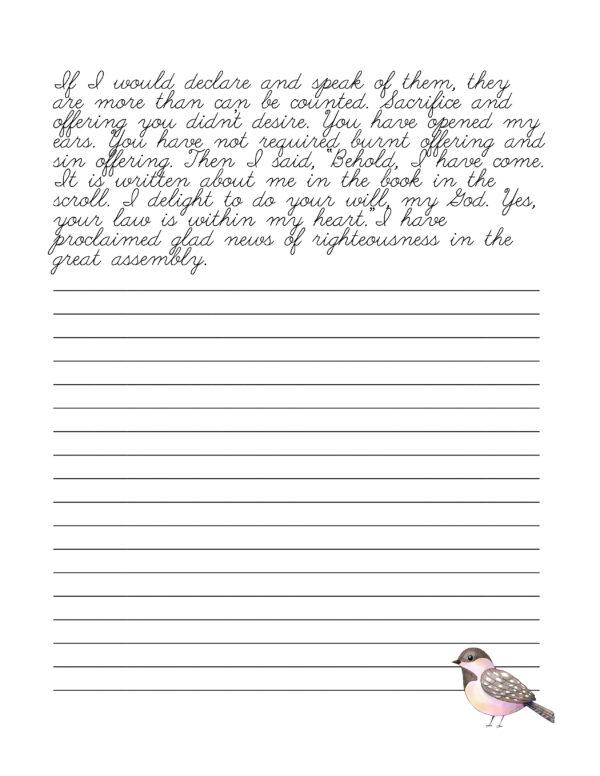 If I would declare and speak of them, they
are more than can be counted. Sacrifice and
offering you didn't desire. You have opened my
ears. You have not required burnt offering and
sin offering. Then I said, "Behold, I have come.
It is written about me in the book in the
scroll. I delight to do your will, my God. Yes,
your law is within my heart." I have
proclaimed glad news of righteousness in the
great assembly.